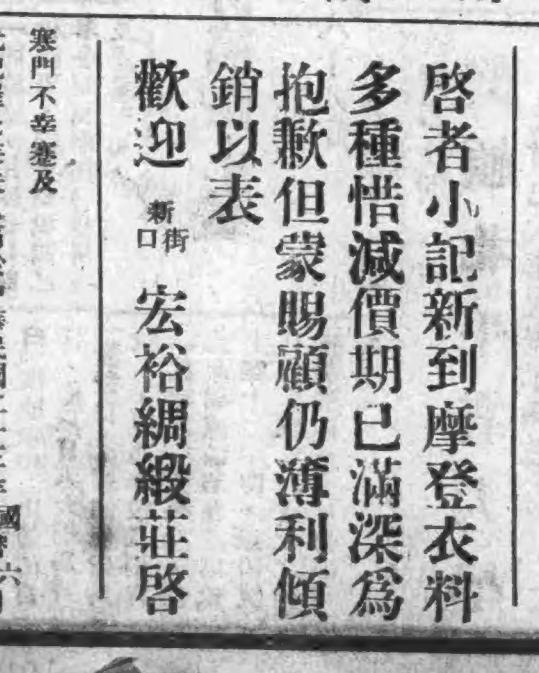 啓者小記新到摩登衣料
多種惜減價期已滿深爲
抱歉但蒙賜顧仍薄利傾
銷以表
歡迎 新街口 宏裕綢緞莊啓
寒門不幸蹇及